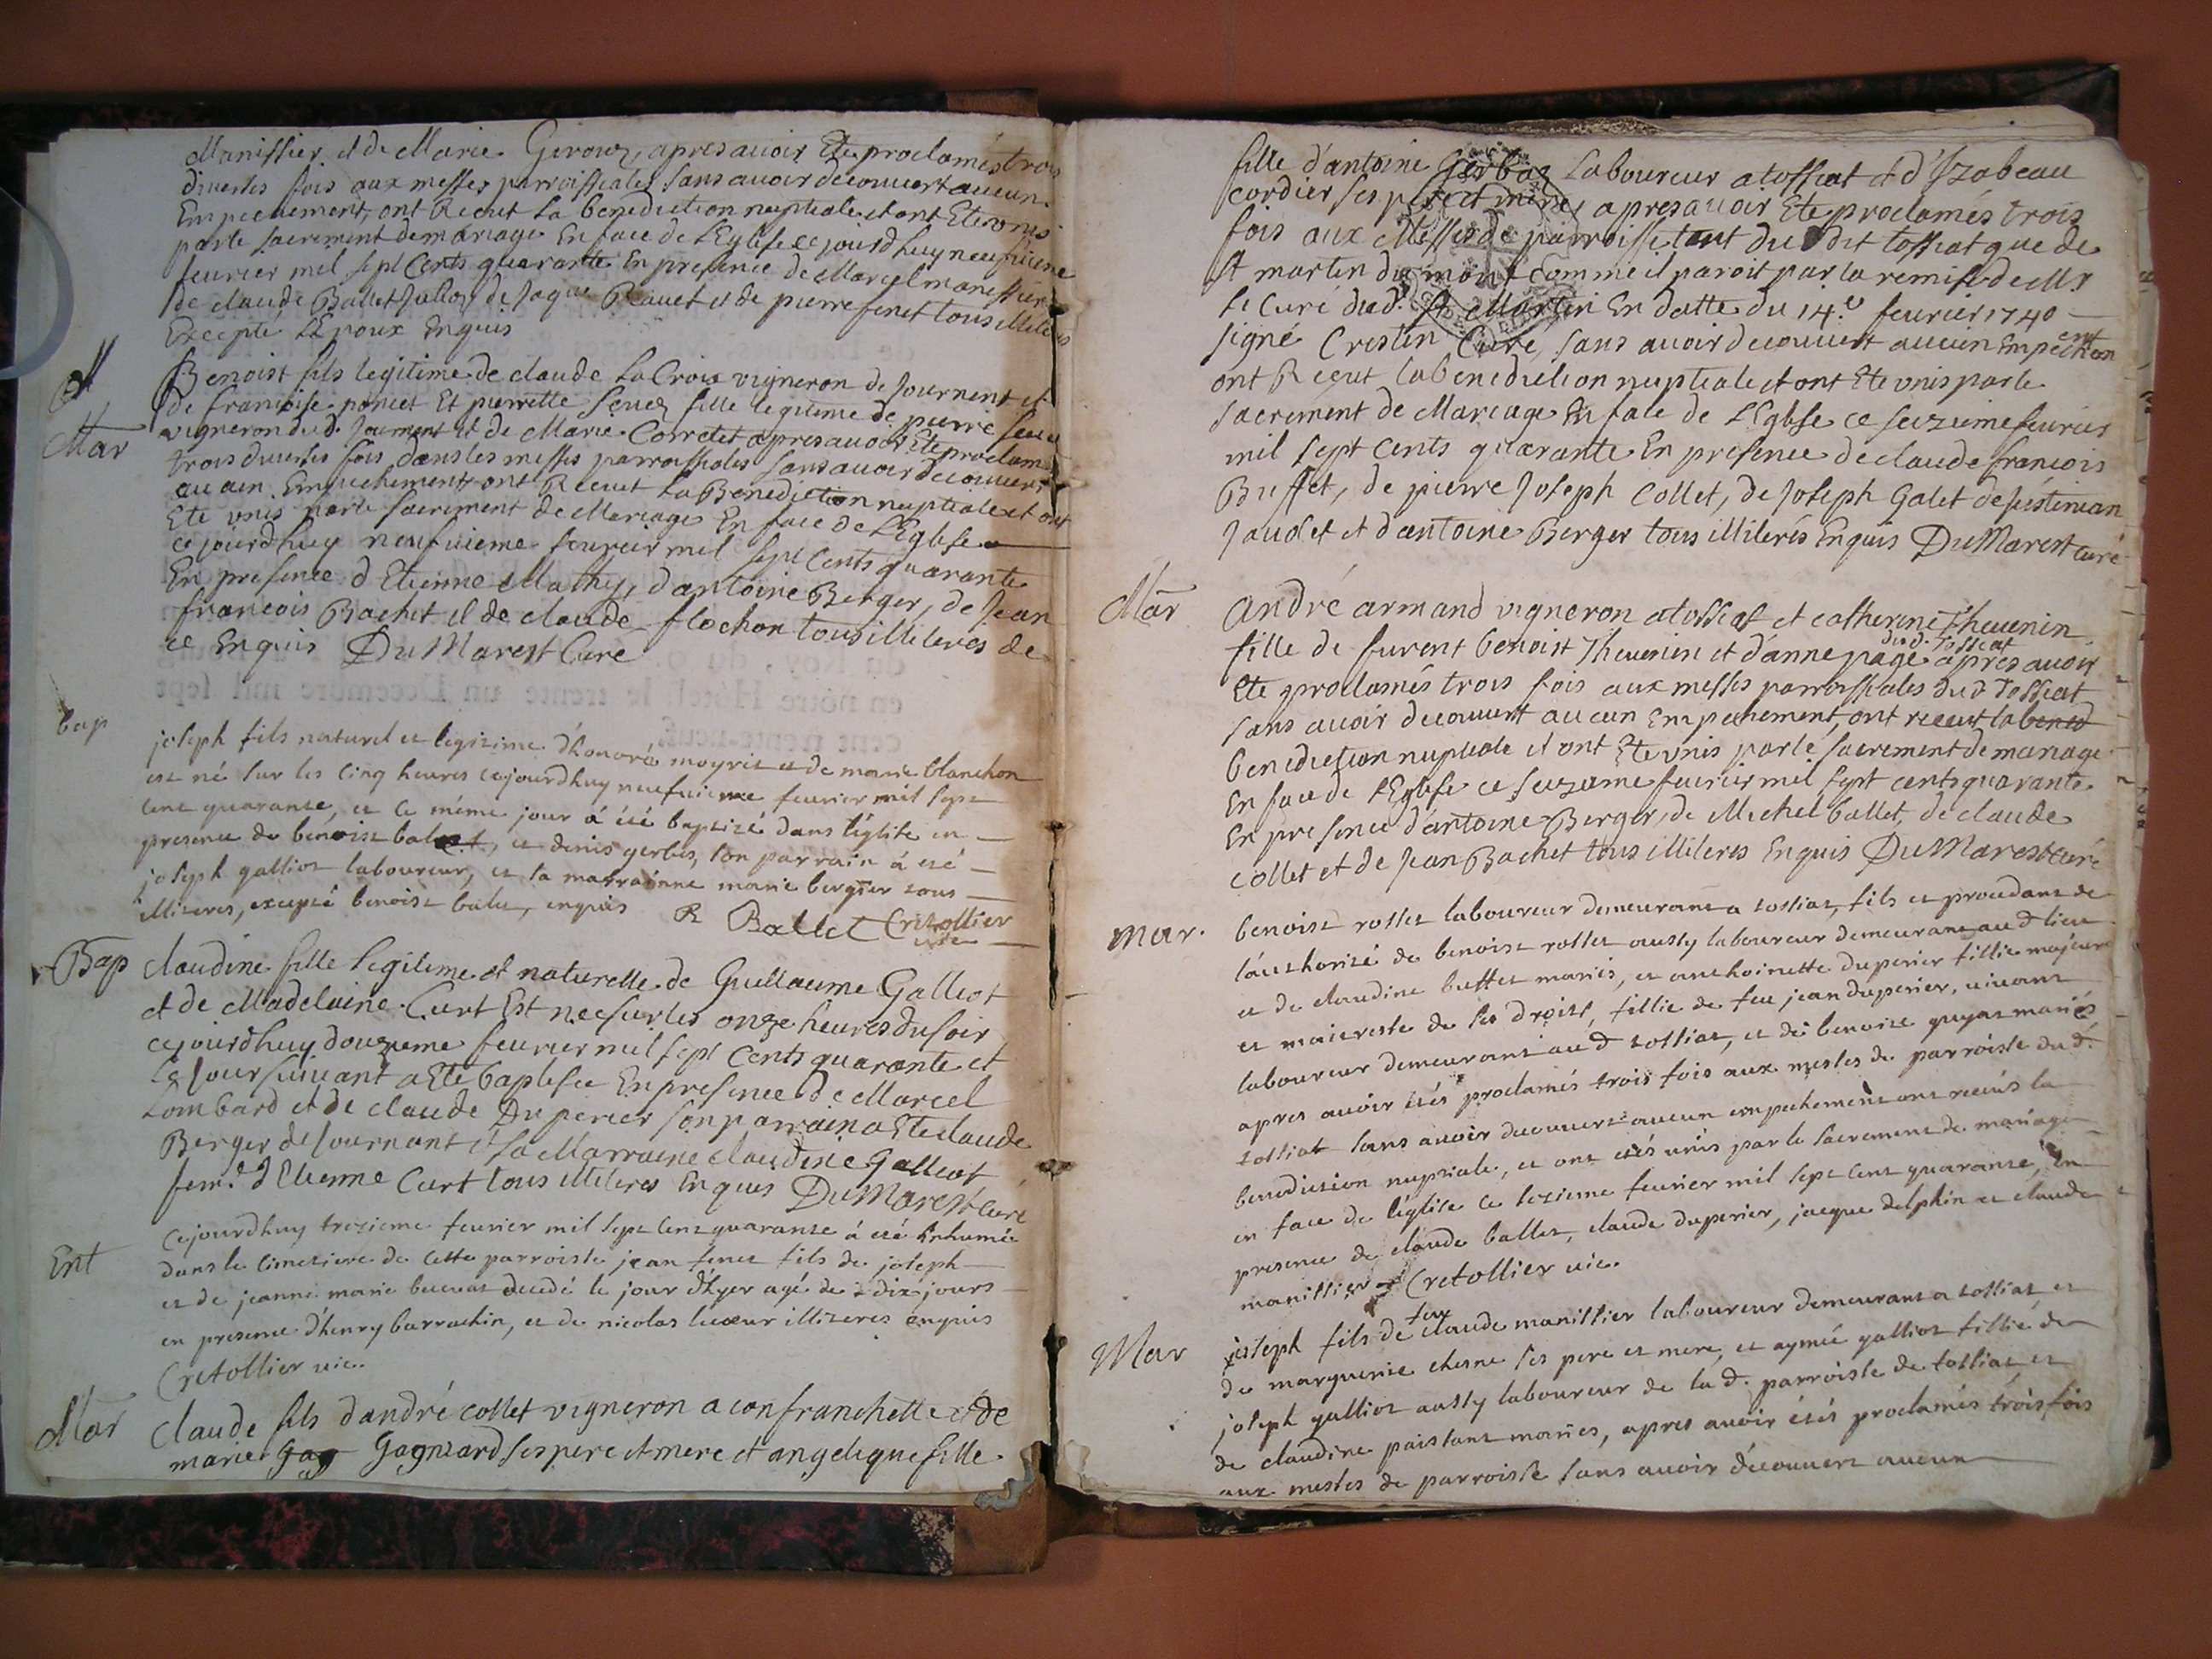 Manissier et de Marie Girouz, apres auoir Ete proclamés trois
diuerses fois aux messes parroissiales sans auoir decouuert aucun
Empechement, ont Recut La benediction nuptiale et ont Ete vnis
par le sacrement de mariage En face de L'Eglise ce jourdhuy neufuieme
feurier mil sept Cents quarante En presence de Marcel manissier
de claude Ballet de Jaque Rauet et de pierre feret tous illiteres
Excepte L'Epoux Enquis
M
Mar
Benoist fils legitime de claude LaCroix vigneron de Journent et
de francoise poncet Et pierrette feuez fille legitime de pierre feuez
vigneron dud. Journent et de Marie Corretet apres auoir Ete proclamés
trois diuerses fois dans les messes parroissiales sans auoir decouuert
aucun Empechement, ont Recut La Benediction nuptiale et ont
Ete vnis par le sacrement de Mariage En face de L'Eglise
ce jourdhuy neufuieme feurier mil sept Cents quarante
En presence d'Etienne Mathy, d'antoine Berger, de Jean
francois Bachet et de claude flochon tous illiteres de
ce Enquis DuMarest Curé
bap
joseph fils naturel et legitime d'honoré moyret et de marie blanchon
est né sur les cinq heures cejourdhuy neufuieme feurier mil sept
cent quarante, et ce même jour à été baptizé dans l'église en
presence de benoist balet, et denis gerbes, son parrain à été
joseph galliot laboureur, et la marrainne marie bergier tous
illiteres, excepté benoist balet, enquis R Ballet Cretollier
vic
Bap
claudine fille legitime et naturelle de Guillaume Galliot
et de Madelaine Curt Est neé sur les onze heures du soir
cejourdhuy douzieme feurier mil sept Cents quarante et
Le Jour suiuant a Ete baptisée En presence de Marcel
Lombard et de claude Duperier son parrain a Ete claude
Berger de Journant et sa Marraine claudine Galliot
fem.e d'Etienne Curt tous illiteres Enquis DuMarest curé
Ent
Cejourdhuy trezieme feurier mil sept cent quarante à été inhumée
dans le cimetiere de cette parroisse jean feret fils de joseph
et de jeanne marie decedé le jour d'hyer agé de dix jours
en presence d'henry barrachin, et de nicolas lacoeur illiteres enquis
Cretollier vic.
Mar
Claude fils d'andré collet vigneron a confranchette et de
marie Gag Gagniard ses pere et mere et angelique fille
fille d'antoine Gerbaz Laboureur a tossiat et d'Jzabeau
cordier ses pere et mere, apres auoir Ete proclamés trois
fois aux Messes de parroisse tant dudit tossiat que de
st martin du mont comme il paroit par la remise de Mr
Le Curé dud. st Martin En datte du 14.e feurier 1740
signé Crestin Curé, sans auoir decouuert aucun Empechem
ent
ont Reçut la benediction nuptiale et ont Ete vnis par le
sacrement de Mariage En face de L'Eglise ce seizieme feurier
mil sept Cents quarante En presence de claude francois
Buffet, de pierre Joseph Collet, de Joseph Galet de Justinian
Jaudet et d'antoine Berger tous illiterés Enquis DuMarest curé
Mar
André armand vigneron a tossiat et catherine Theuenin
fille de furent benoist Theuenin et d'anne page apres auoir
dud. Tossiat
Ete proclamés trois fois aux messes parroissiales dud Tossiat
sans auoir decouuert aucun Empechement, ont receut la bened
benediction nuptiale et ont Ete vnis par le sacrement de mariage
En face de L'Eglise ce seizieme feurier mil sept cents quarante
En presence d'antoine Berger, de Michel ballet, de claude
collet et de Jean Bachet tous illiteres Enquis DuMarest curé
mar.
benoist rosset laboureur demeurant a tossiat, fils et procedant de
l'authorité de benoist rosset aussy laboureur demeurant aud lieu
et de claudine buffet mariés, et anthoinette duperier fillie majeure
et maitresse de ses droist, fillie de feu jean duperier, viuant
laboureur demeurant aud tossiat, et de benoite guyat mariés
apres auoir étés proclamés trois fois aux messes de parroisse dud.
tossiat sans auoir decouuert aucun empechement ont receus la
benediction nuptiale, et ont étés unis par le sacrement de mariage
en face de l'église ce sezieme feurier mil sept cent quarante, en
presence de claude ballet, claude duperier, jacque delphin et claude
manissier Cretollier vic.
Mar
feu
joseph fils de claude manissier laboureur demeurant a tossiat et
de marguerite chesne ses pere et mere, et aymée galliot fillie de
joseph galliot aussy laboureur de lad. parroisse de tossiat, et
de claudine paissant mariés, apres auoir étés proclamés trois fois
aux messes de parroisse sans auoir découuert aucun